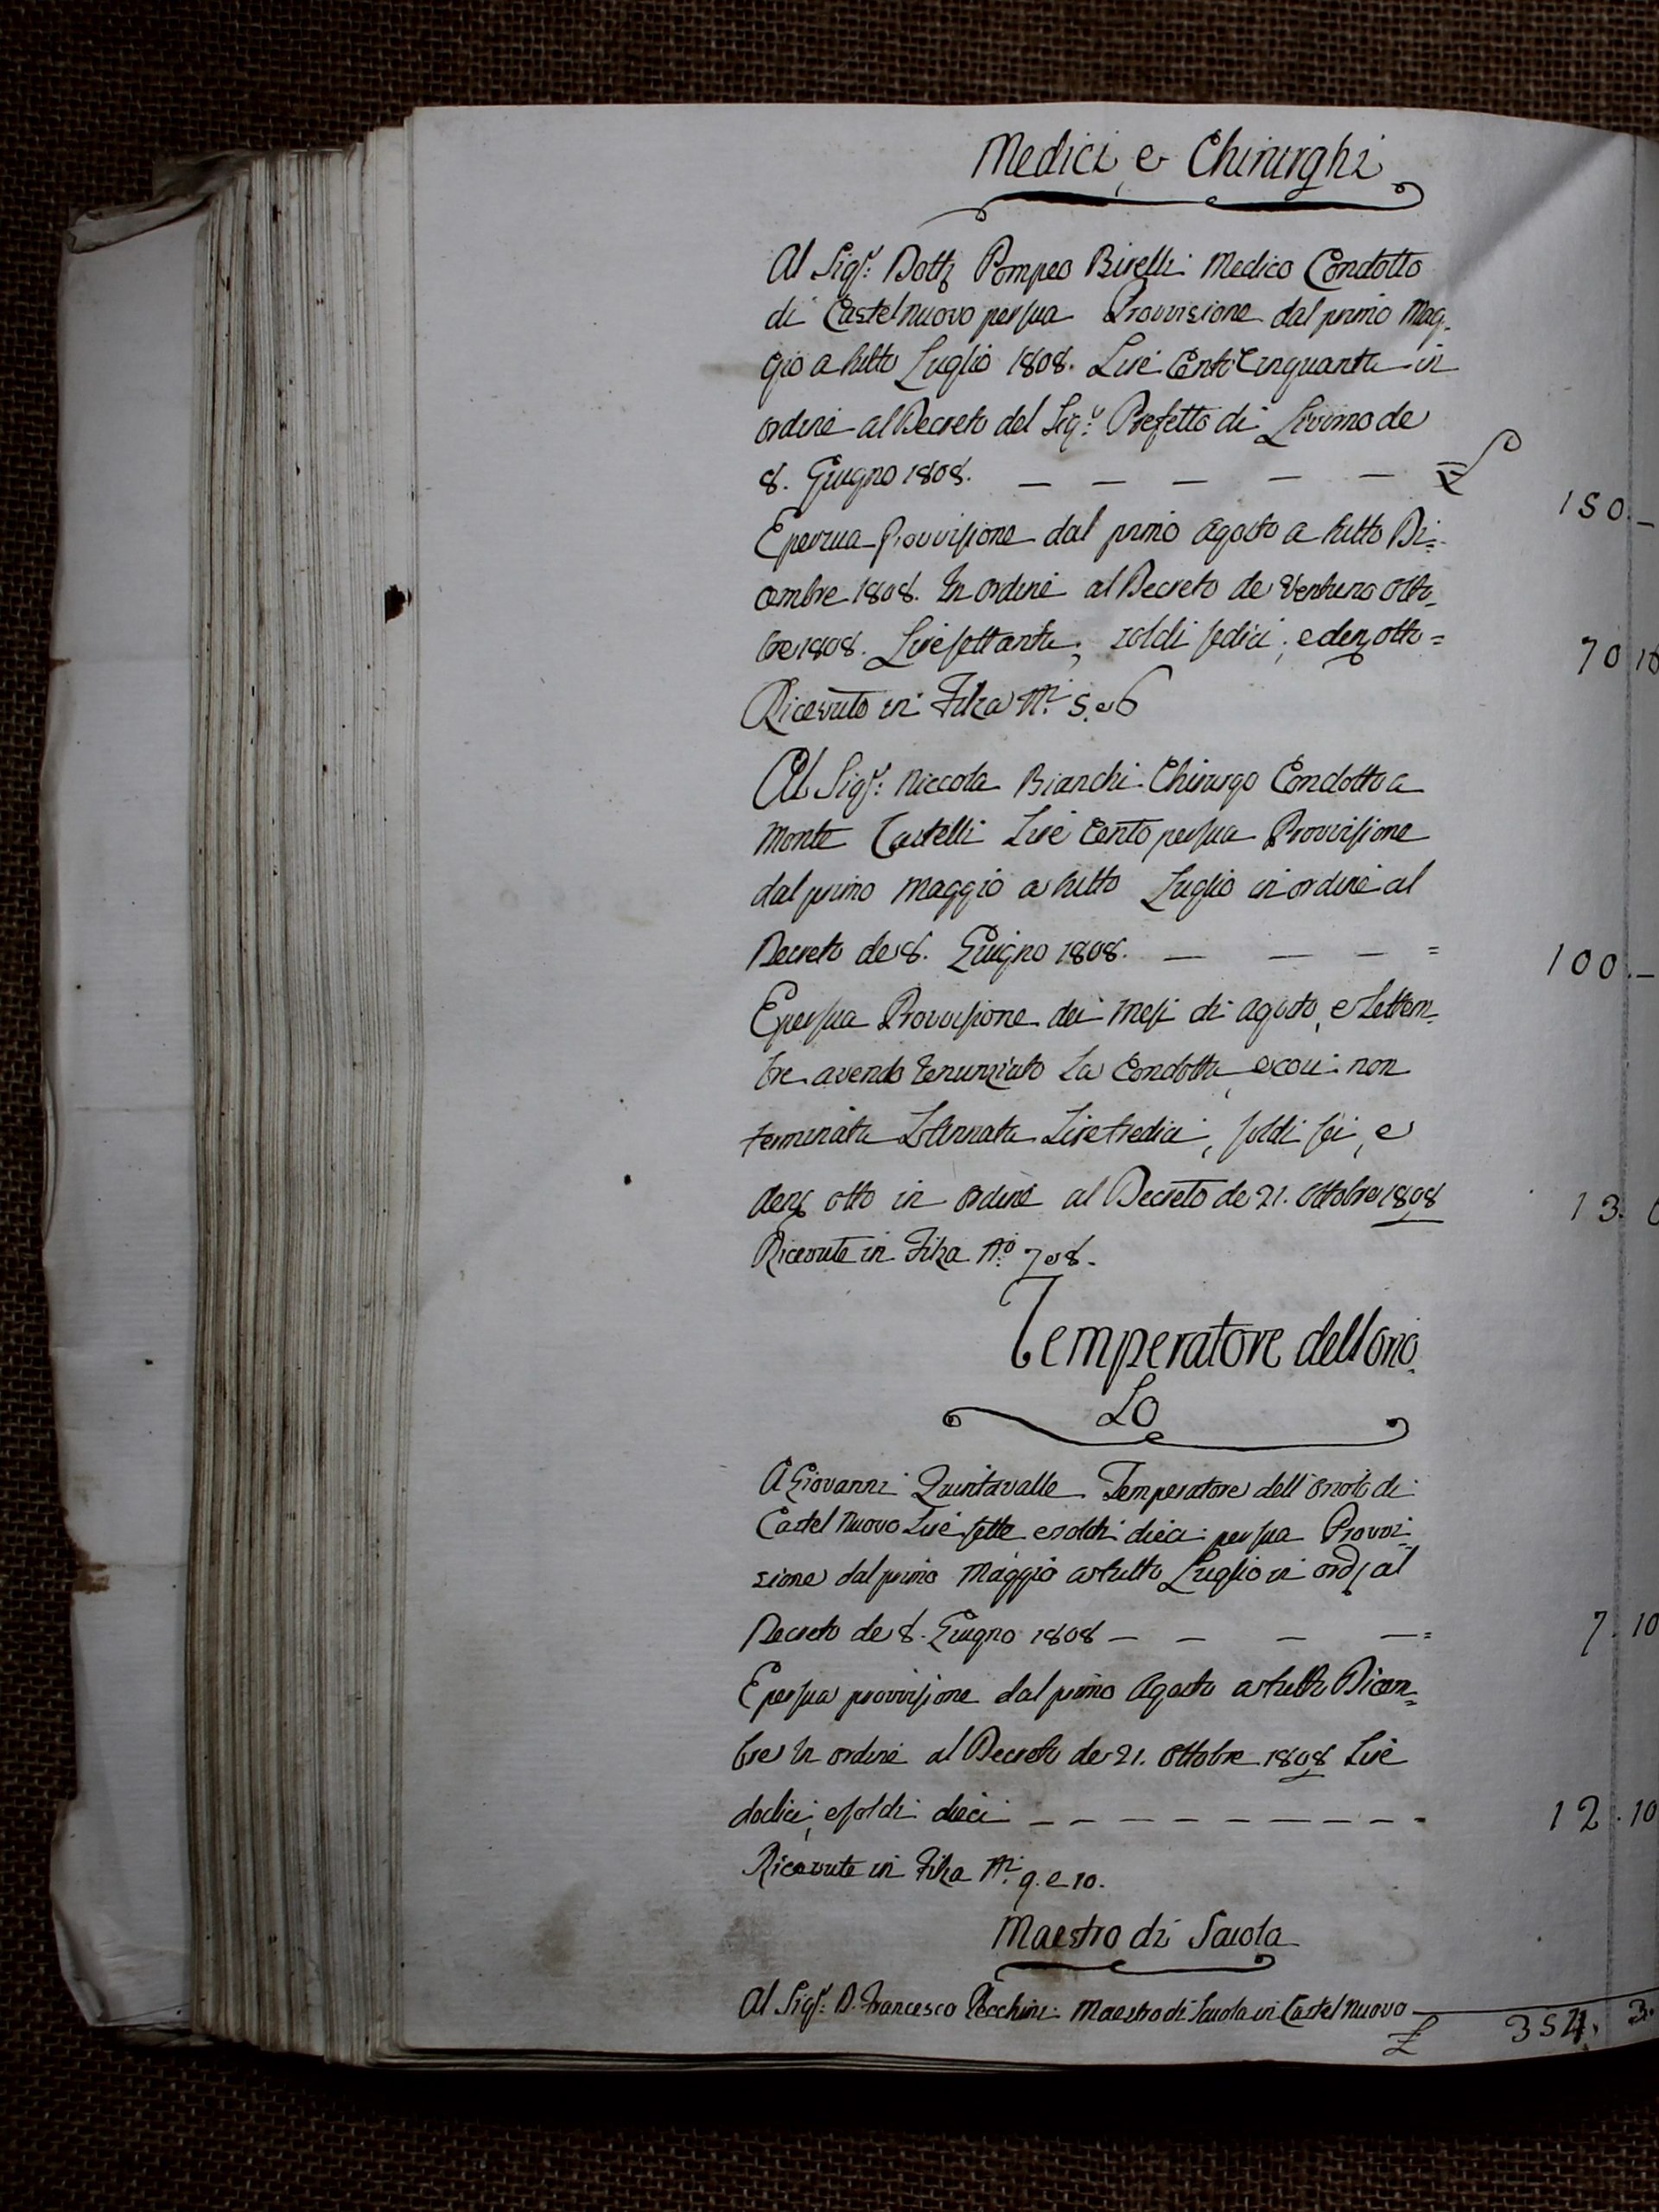 Medici, e Chirurghi
Al Sig.r: Dott. Pompeo Birelli Medico Condotto
di Castelnuovo per sua Provvisione dal primo Mag-
gio a tutto Luglio 1808. Lire Cento Cinquanta in
ordine al Decreto del Sig.r: Prefetto di Livorno de
8. Giugno 1808. — — — — — £
150.—
E per sua Provvisione dal primo Agosto a tutto Di=
cembre 1808. In ordine al Decreto de Ventuno Otto-
bre 1808. Lire settanta, soldi sedici, e den. otto =
70 16
Ricevute in Filza N.i 5. e 6
Al Sig.r: Niccola Bianchi Chirurgo Condotto a
Monte Castelli Lire Cento per sua Provvisione
dal primo Maggio a tutto Luglio in ordine al
Decreto de 8. Giugno 1808. — — — =
100.—
E per sua Provvisione dei Mesi di Agosto, e Settem-
bre avendo renunziato La Condotta, e così non
terminata L'Annata Lire tredici, soldi sei, e
den. otto in ordine al Decreto de 21. Ottobre 1808
13. 6
Ricevute in Filza N.o 7 e 8.
Temperatore dell'Orio
Lo
A Giovanni Quintavalle Temperatore dell'Oriolo di
Castel Nuovo Lire sette e soldi dieci per sua Provvi-
sione dal primo Maggio a tutto Luglio in ord. al
Decreto de 8. Giugno 1808 — — — — =
7. 10
E per sua provvisione dal primo Agosto a tutto Dicem=
bre In ordine al Decreto de 21. Ottobre 1808 Lire
dodici, e soldi dieci — — — — — — — — —
12. 10
Ricevute in Filza N.i 9. e 10.
Maestro di Scuola
Al Sig.r: D. Francesco Pecchini Maestro di Scuola in Castel Nuovo
£ 354. 3.